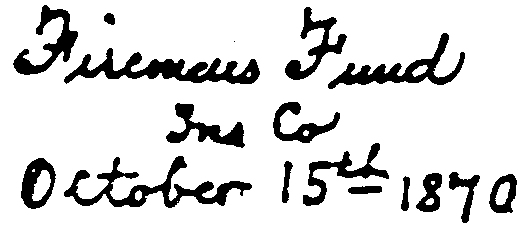 Firemans Fund
Ins Co
October 15th 1870